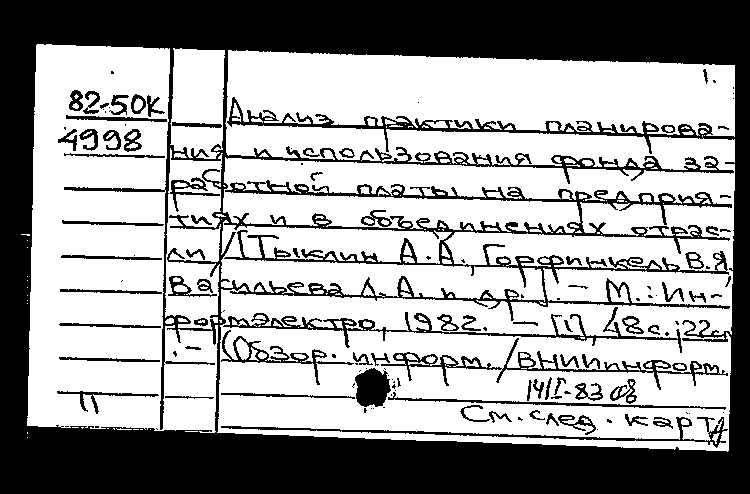 1.
82-50К
4998
Анализ практики планирова-
ния и использования фонда за-
работной платы на предприя-
тиях и в объединениях отрас-
ли / [Тыклин А.А., Горфинкель В.Я.,
Васильева Л.А. и др.]. - М.: Ин-
формэлектро, 1982. - [1], 48 с.; 22 см
. - (Обзор. информ. / ВНИИинформ.
14/I-83
11
См. след. карт